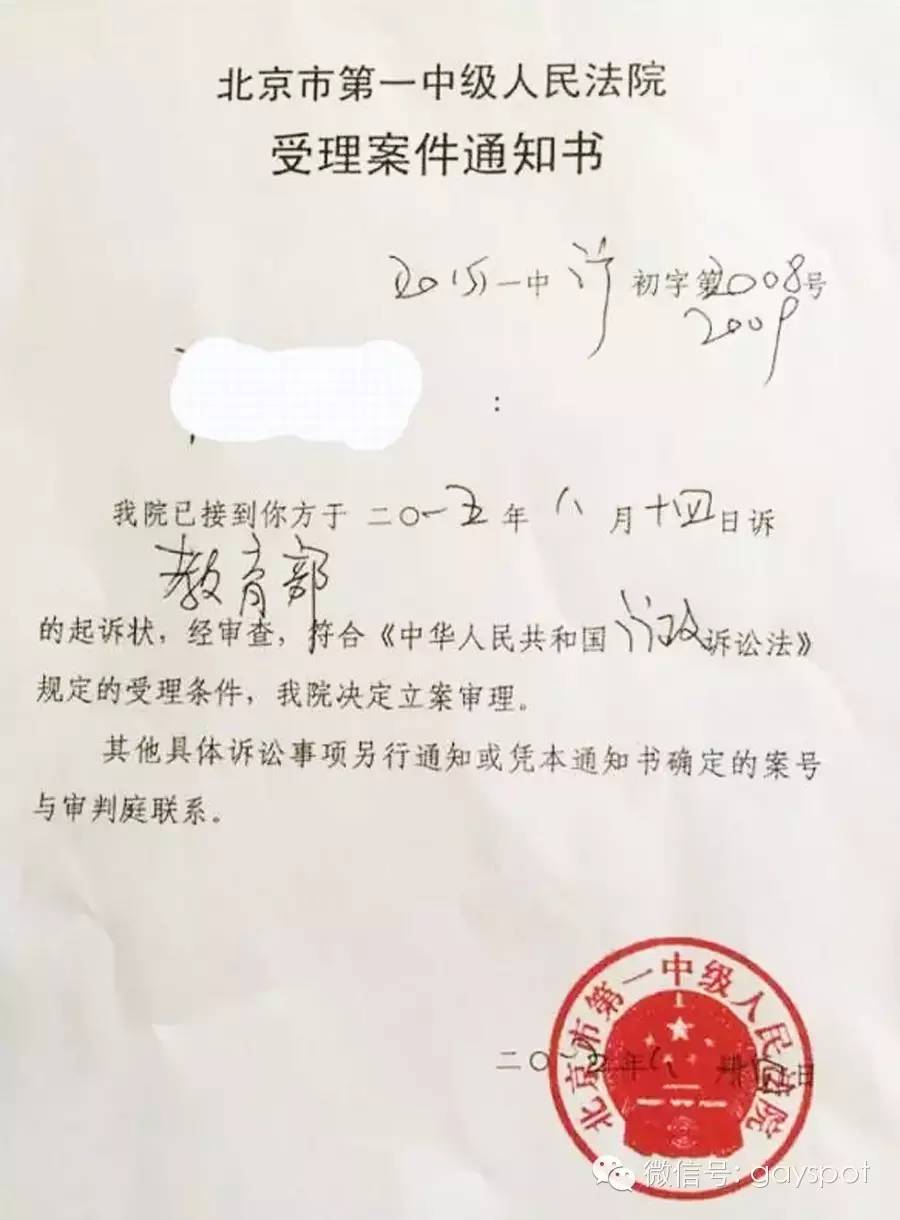 北京市第一中级人民法院
受理案件通知书
2015一中行初字第2008号
2009
：
我院已接到你方于二〇一五年八月十四日诉
教育部
的起诉状，经审查，符合《中华人民共和国行政诉讼法》
规定的受理条件，我院决定立案审理。
其他具体诉讼事项另行通知或凭本通知书确定的案号
与审判庭联系。
北京市第一中级人民法院
二〇一五年八月十四日
微信号: gayspot